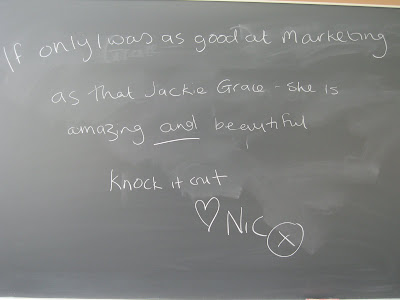 If only I was as good at Marketing
as that Jackie Grace - she is
amazing and beautiful
Knock it out
♡ Nic x